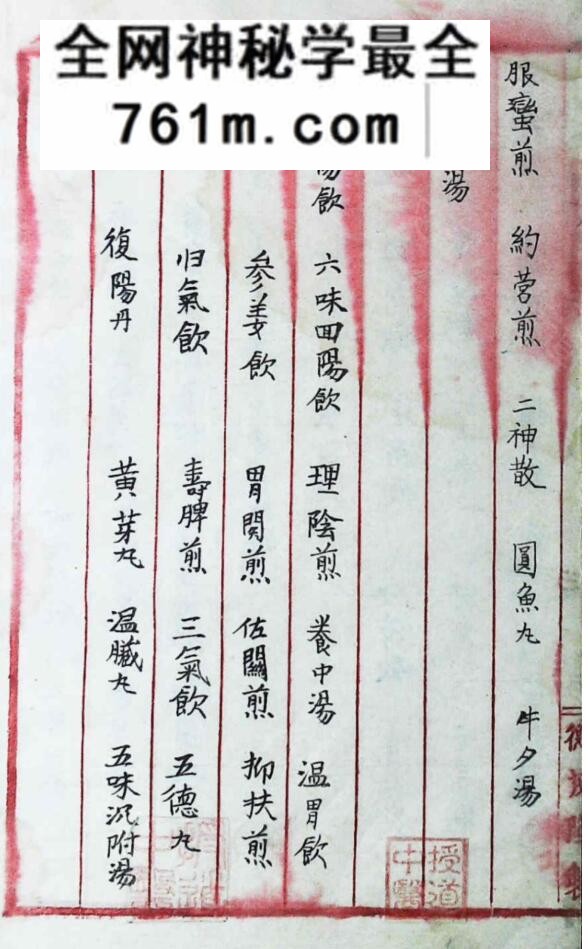 全网神秘学最全
761m.com
服蛮煎 約营煎 二神散 圓魚丸 牛夕湯
湯
陽飲 六味回陽飲 理陰煎 養中湯 温胃飲
參姜飲 胃関煎 佐關煎 抑扶煎
归氣飲 壽脾煎 三氣飲 五德丸
復陽丹 黄芽丸 温臟丸 五味沉附湯
授道
中醫